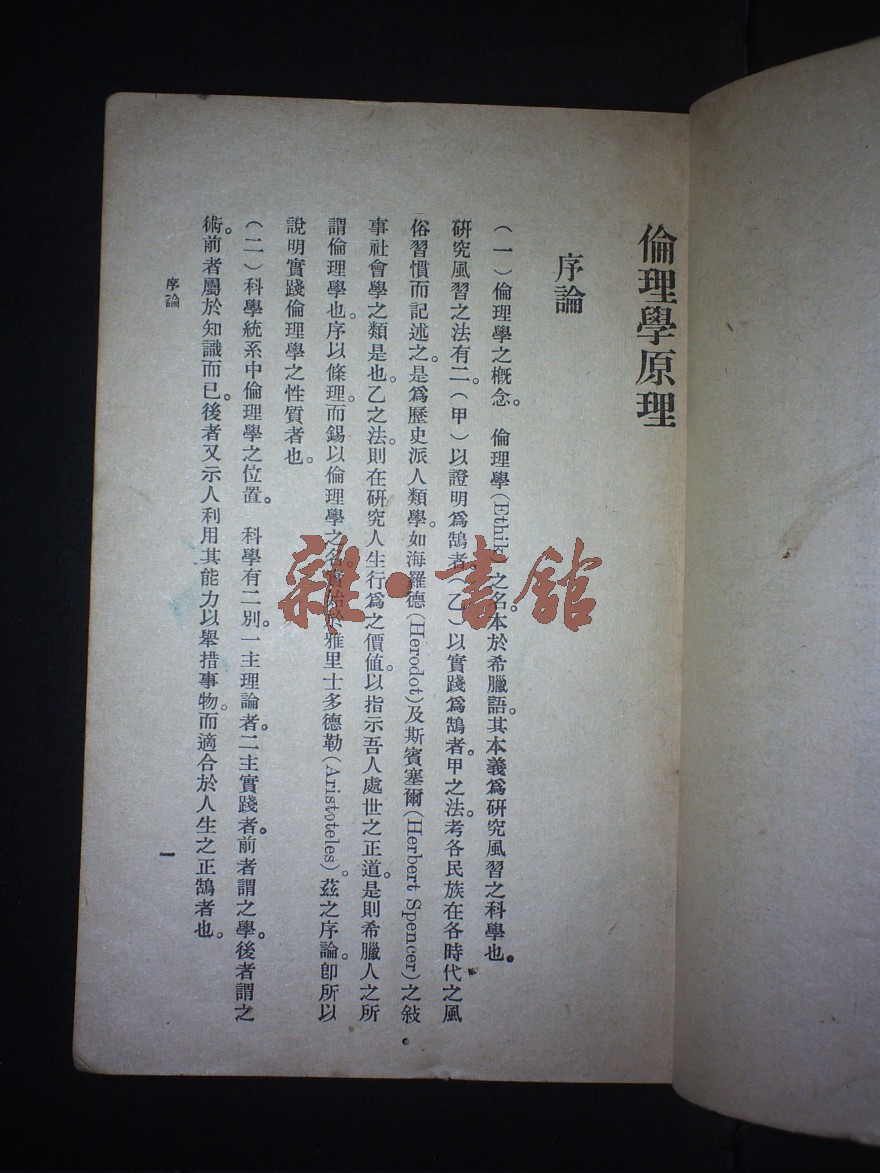 倫理學原理
序論
（一）倫理學之概念。　倫理學(Ethik)之名。本於希臘語。其本義爲研究風習之科學也。
研究風習之法有二。（甲）以證明爲鵠者。（乙）以實踐爲鵠者。甲之法。考各民族在各時代之風
俗習慣而記述之。是爲歷史派人類學。如海羅德(Herodot)及斯賓塞爾(Herbert Spencer)之敍
事社會學之類是也。乙之法。則在研究人生行爲之價值。以指示吾人處世之正道。是則希臘人之所
謂倫理學也。序以條理。而錫以倫理學之名。實始於雅里士多德勒(Aristoteles)。茲之序論。卽所以
說明實踐倫理學之性質者也。
（二）科學統系中倫理學之位置。　科學有二別。一主理論者。二主實踐者。前者謂之學。後者謂之
術。前者屬於知識而已。後者又示人利用其能力以舉措事物。而適合於人生之正鵠者也。
序論
一
雜·書館